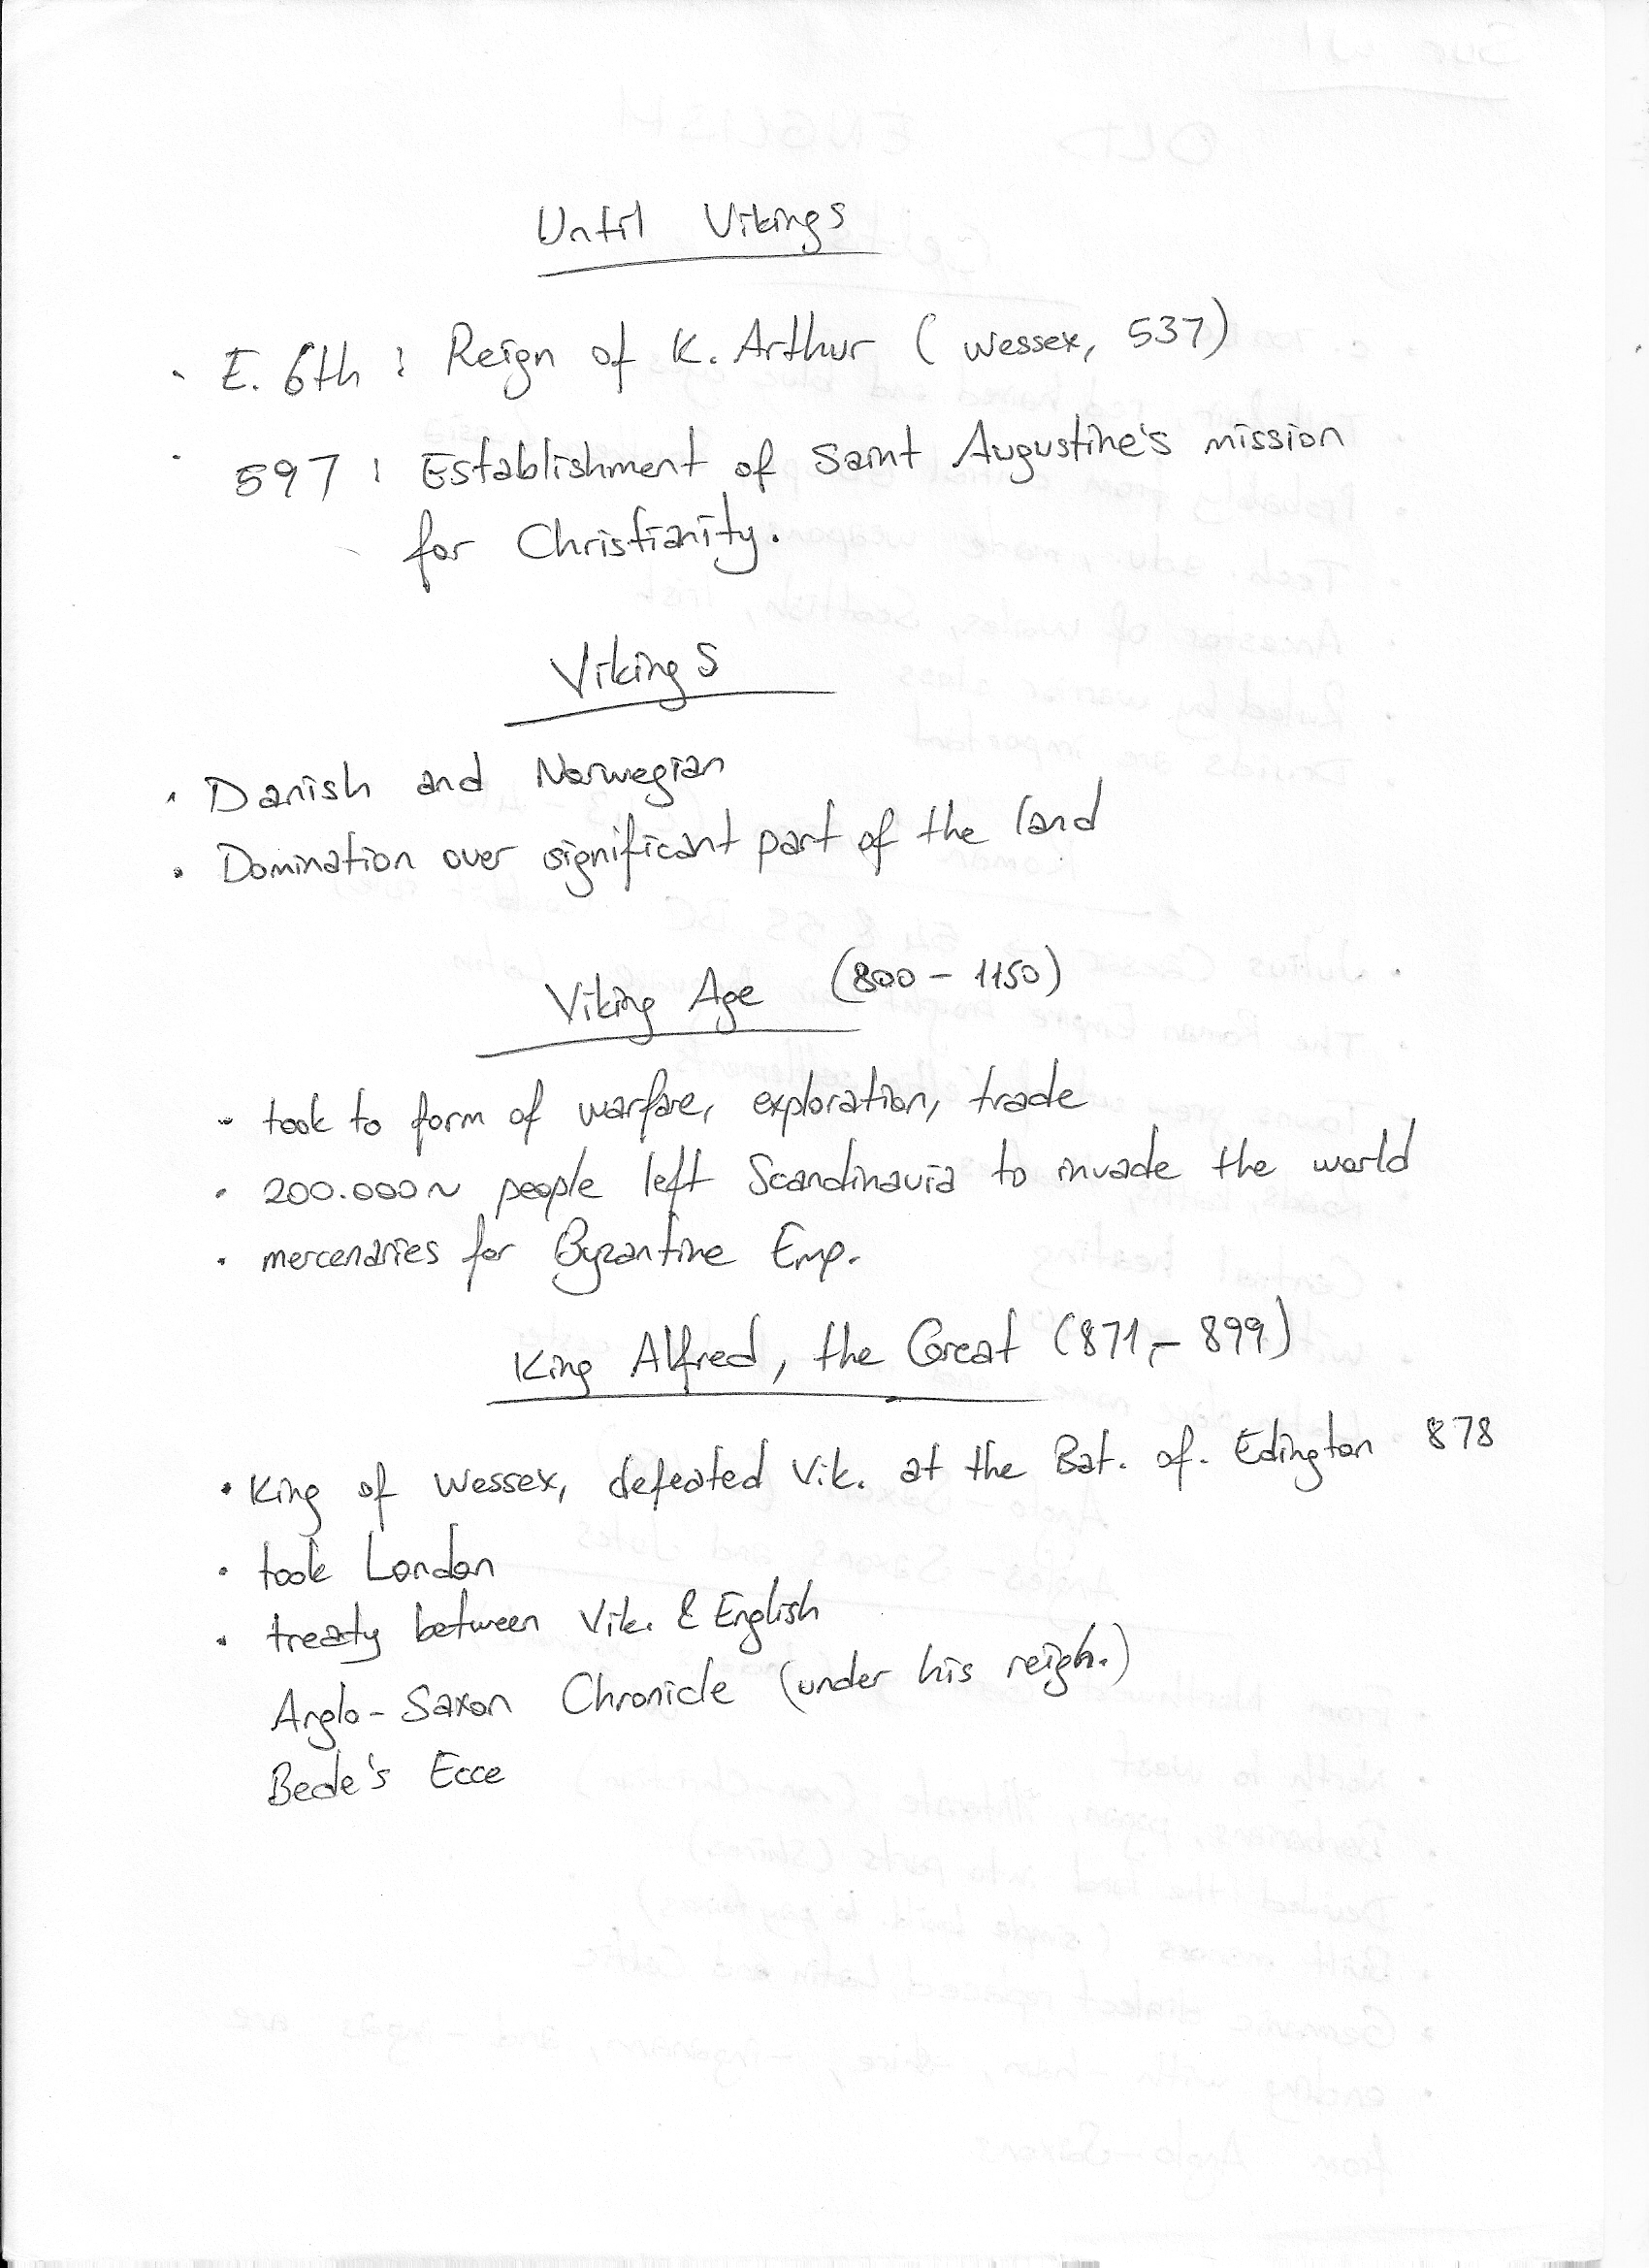 Until Vikings
· E. 6th : Reign of K. Arthur ( Wessex, 537)
· 597 : Establishment of Saint Augustine's mission
for Christianity.
Vikings
· Danish and Norwegian
· Domination over significant part of the land
Viking Age (800 - 1150)
- took to form of warfare, exploration, trade
· 200.000~ people left Scandinavia to invade the world
· mercenaries for Byzantine Emp.
King Alfred, the Great (871 - 899)
· King of Wessex, defeated Vik. at the Bat. of. Edington 878
· took London
· treaty between Vik. & English
Anglo-Saxon Chronicle (under his reign.)
Bede's Ecce